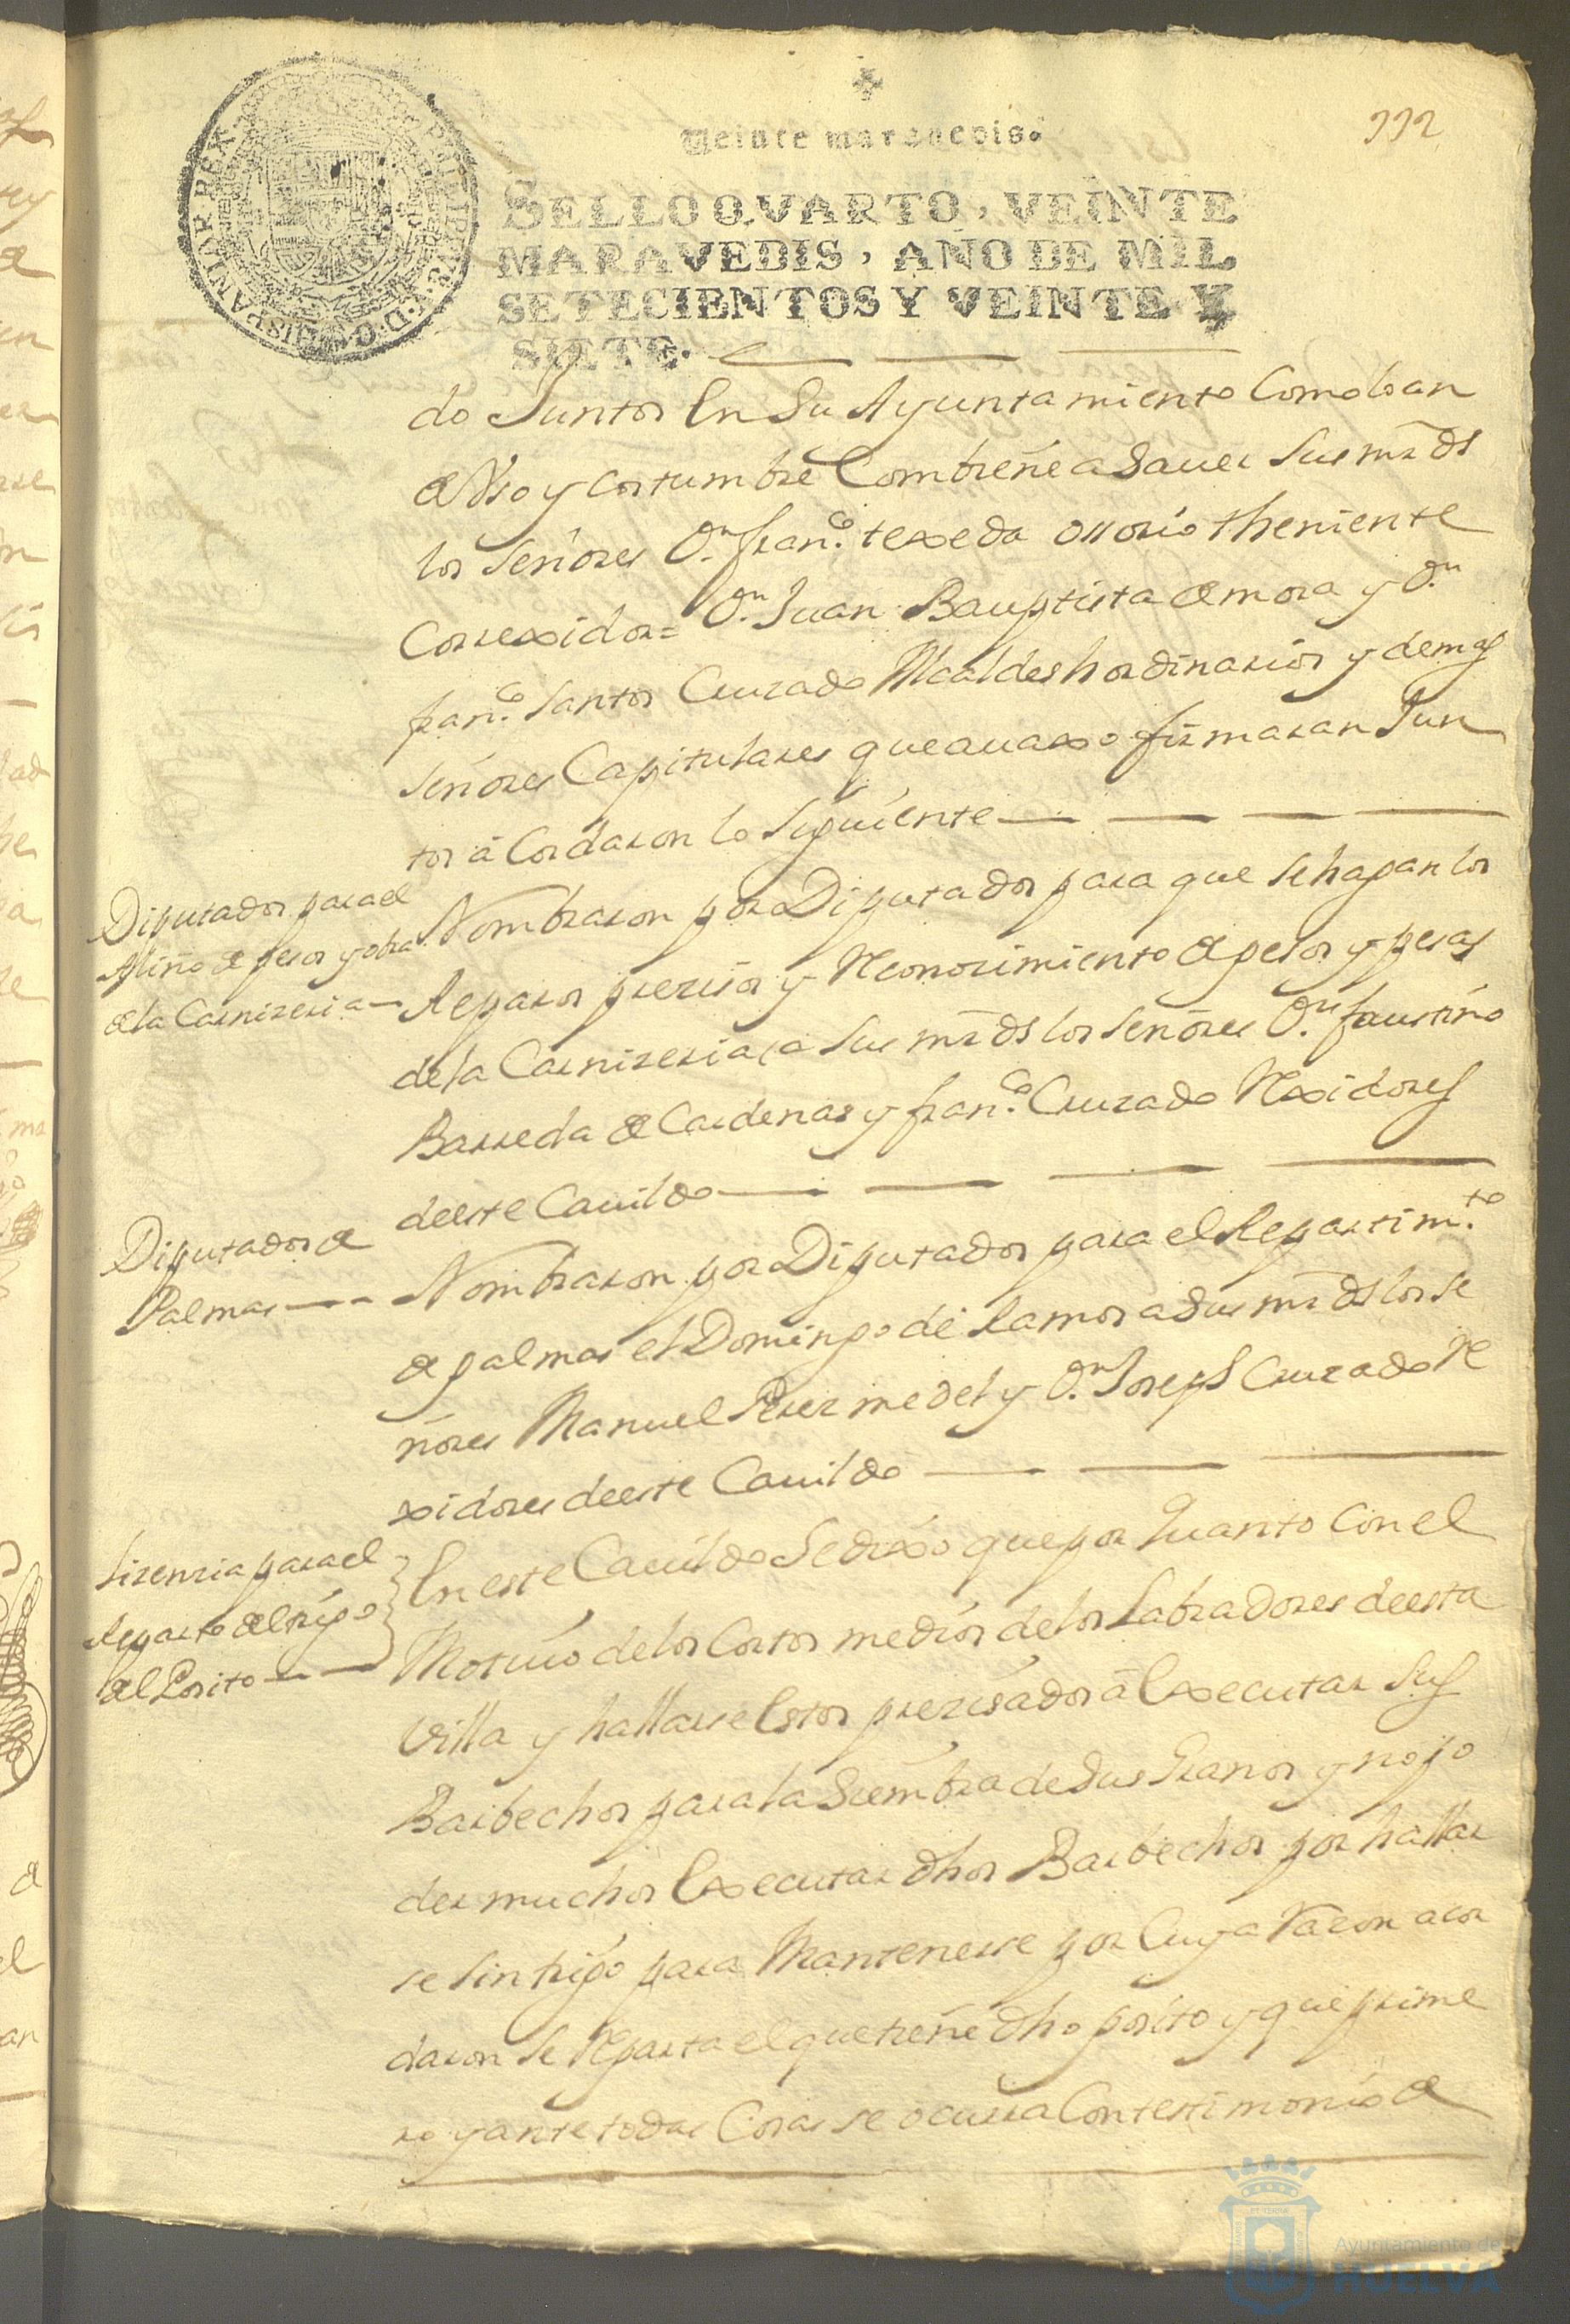 Veinte maravedis.
112
PHILIPPUS V D G HISPANIAR REX
SELLO QVARTO, VEINTE
MARAVEDIS, AÑO DE MIL
SETECIENTOS Y VEINTE Y
SIETE.
do Juntos En Su Ayuntamiento Como loan
de Vso y costumbre Combiene a Sauer Sus mrds
los señores Dn. franco. texeda ossorio theniente
Correxidor = Dn. Juan Bauptista de mora y Dn.
franco. santos Cruzado Alcaldes hordinarios y demas
señores Capitulares que auaxo firmaran Jun
tos a Cordaron lo Siguiente
Diputados para el
Aliño de pesos y obra
de la Carnizeria
Nombraron por Diputados para que se hagan los
Reparos prezisos y Reconozimiento de pesos y pesas
de la Carnizeria a Sus mrds los señores Dn. faustino
Barreda de Cardenas y franco. Cruzado Rexidores
deeste Cauildo
Diputados de
Palmas
Nombraron por Diputados para el Repartimto.
de palmas el Domingo de Ramos a Sus mrds los se
ñores Manuel Perez medel y Dn. Joseph Cruzado Re
xidores deeste Cauildo
Lizenzia para el
Reparto del trigo
del Posito
En este Cauildo Se dixo que por Quanto Con el
Motiuo de los Cortos medios de los Labradores deesta
Villa y hallarse Estos prezisados a Executar Sus
Barbechos para la Siembra de Sus Granos y no po
der muchos Executar dhos Barbechos por hallar
se sin trigo para Mantenerse por Cuya Razon acor
daron Se Reparta el que tiene dho posito y que prime
ro y ante todas Cosas se ocurra Con testimonio de
Ayuntamiento de
HUELVA